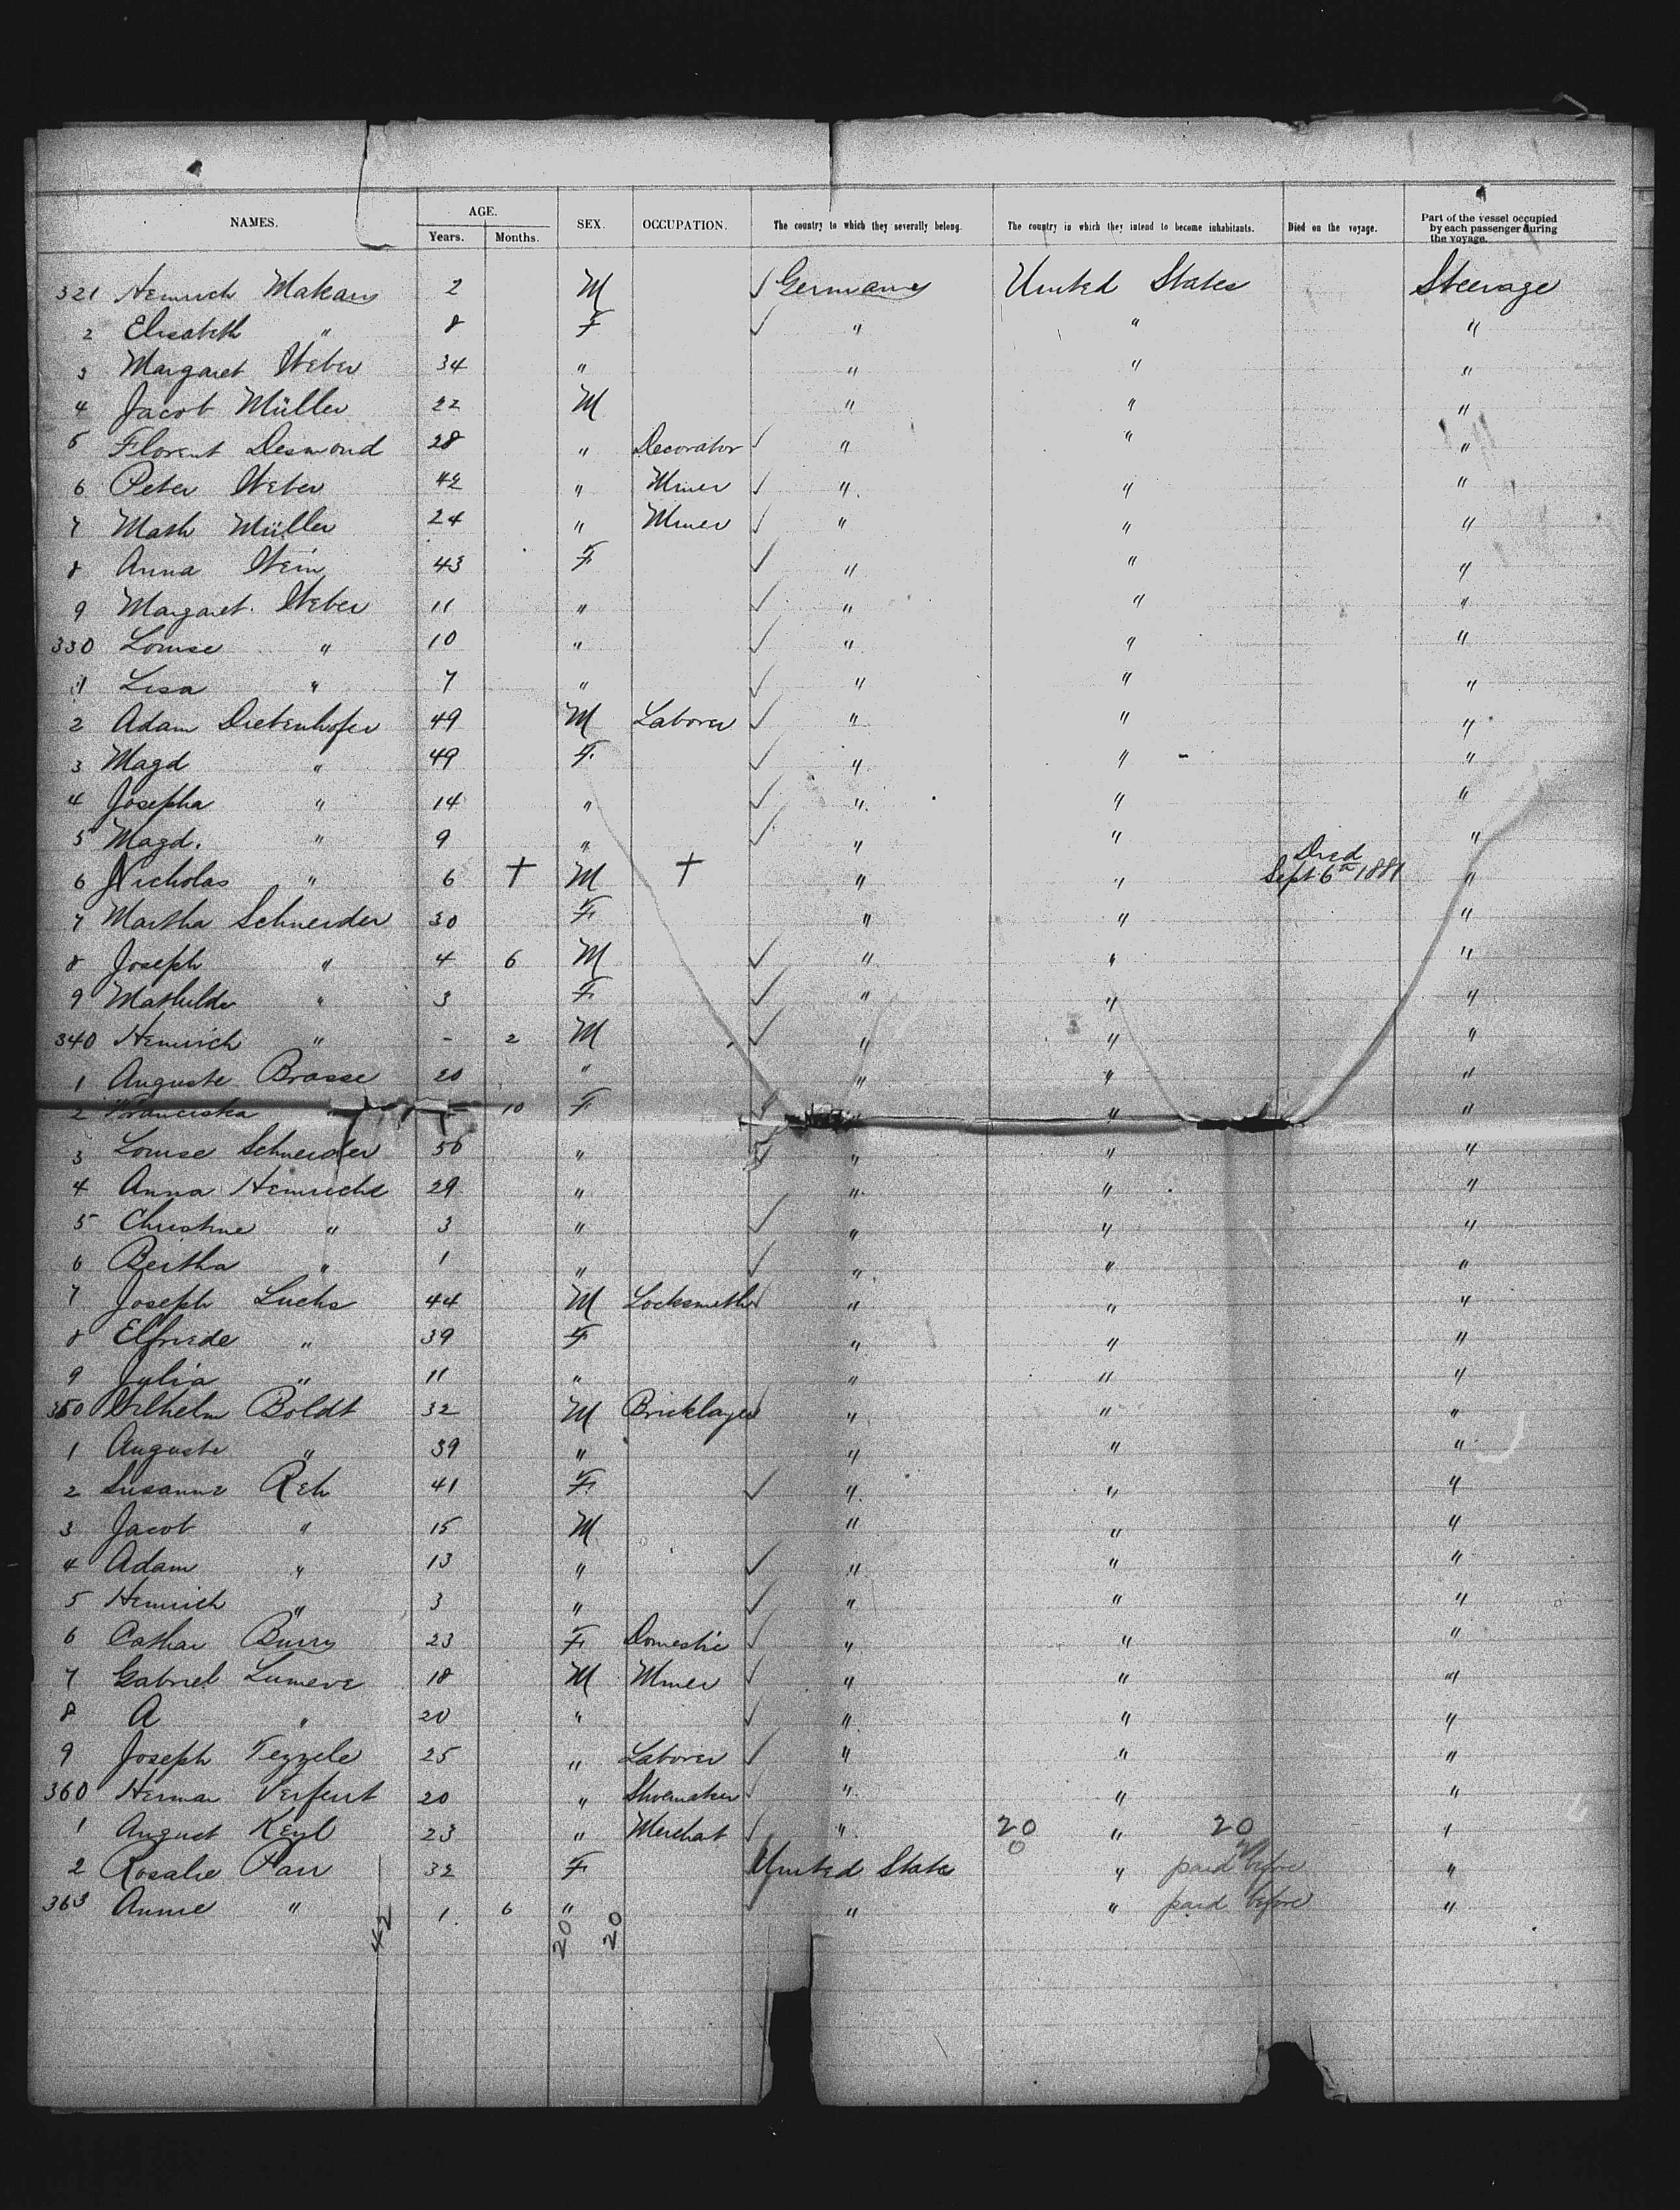 NAMES. AGE. Years. Months. SEX. OCCUPATION. The country to which they severally belong. The country in which they intend to become inhabitants. Died on the voyage. Part of the vessel occupied by each passenger during the voyage.
321 Heinrich 2 M Germany United States Steerage
2 Elisabeth " 8 F " " "
3 Margaret Weber 34 " " " "
4 Jacob Müller 22 M " " "
5 Florent Desmond 28 " Decorator " " "
6 Peter Weber 42 " Miner " " "
7 Math Müller 24 " Miner " " "
8 Anna Wein 43 F " " "
9 Margaret Weber 11 " " " "
330 Louise " 10 " " " "
1 Lisa " 7 " " " "
2 Adam Dietenhofer 49 M Laborer " " "
3 Magd " 49 F " " "
4 Josepha " 14 " " " "
5 Magd. " 9 " " " "
6 Nicholas " 6 † M † " " Died Sept. 6th 1881 "
7 Martha Schneider 30 F " " "
8 Joseph " 4 6 M " " "
9 Mathilde " 3 F " " "
340 Heinrich " - 2 M " " "
1 Auguste Brasse 20 " " " "
2 Franciska " - 10 F " " "
3 Louise Schneider 50 " " " "
4 Anna Heinrichs 29 " " " "
5 Christine " 3 " " " "
6 Bertha " 1 " " " "
7 Joseph Luchs 44 M Locksmith " " "
8 Elfriede " 39 F " " "
9 Julia " 11 " " " "
350 Wilhelm Boldt 32 M Bricklayer " " "
1 Auguste " 39 " " " "
2 Susanne Reh 41 F " " "
3 Jacob " 15 M " " "
4 Adam " 13 " " " "
5 Heinrich " 3 " " " "
6 Cathar Burry 23 F Domestic " " "
7 Gabriel Lumeve 18 M Miner " " "
8 A " 20 " " " "
9 Joseph Tezzele 25 " Laborer " " "
360 Herman 20 " Shoemaker " " "
1 August Keyl 23 " Merchat " 20 " 20 "
2 Rosalie Parr 32 F United States " paid before "
363 Annie " 1 6 " " " paid before "
42 20 20